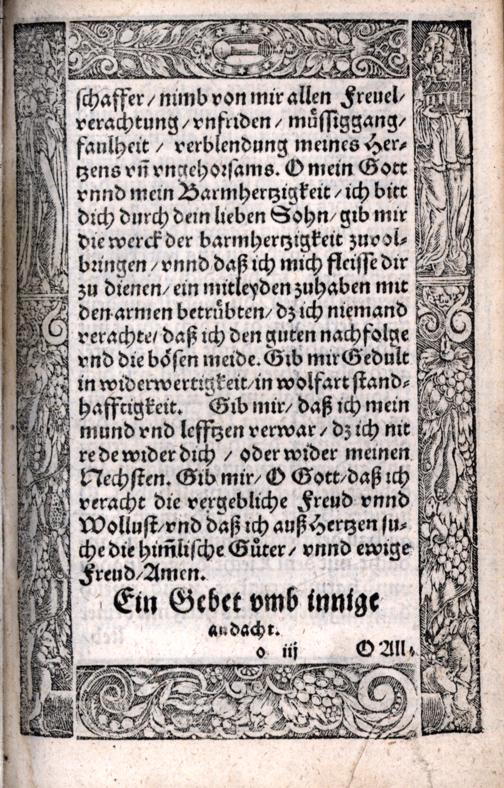 schaffer/ nimb von mir allen Freuel/
verachtung/ vnfriden/ müssiggang/
faulheit/ verblendung meines Her-
tzens vñ vngehorsams. O mein Gott
vnnd mein Barmhertzigkeit/ ich bitt
dich durch dein lieben Sohn/ gib mir
die werck der barmhertzigkeit zuvol-
bringen/ vnnd daß ich mich fleisse dir
zu dienen/ ein mitleyden zuhaben mit
den armen betrübten/ dz ich niemand
verachte/ daß ich den guten nachfolge
vnd die bösen meide. Gib mir Gedult
in widerwertigkeit/ in wolfart stand-
hafftigkeit. Gib mir/ daß ich mein
mund vnd lefftzen verwar/ dz ich nit
rede wider dich/ oder wider meinen
Nechsten. Gib mir/ O Gott/ daß ich
veracht die vergebliche Freud vnnd
Wollust/ vnd daß ich auß Hertzen su-
che die him̃lische Güter/ vnnd ewige
Freud/ Amen.
Ein Gebet vmb innige
andacht.
o iij O All-